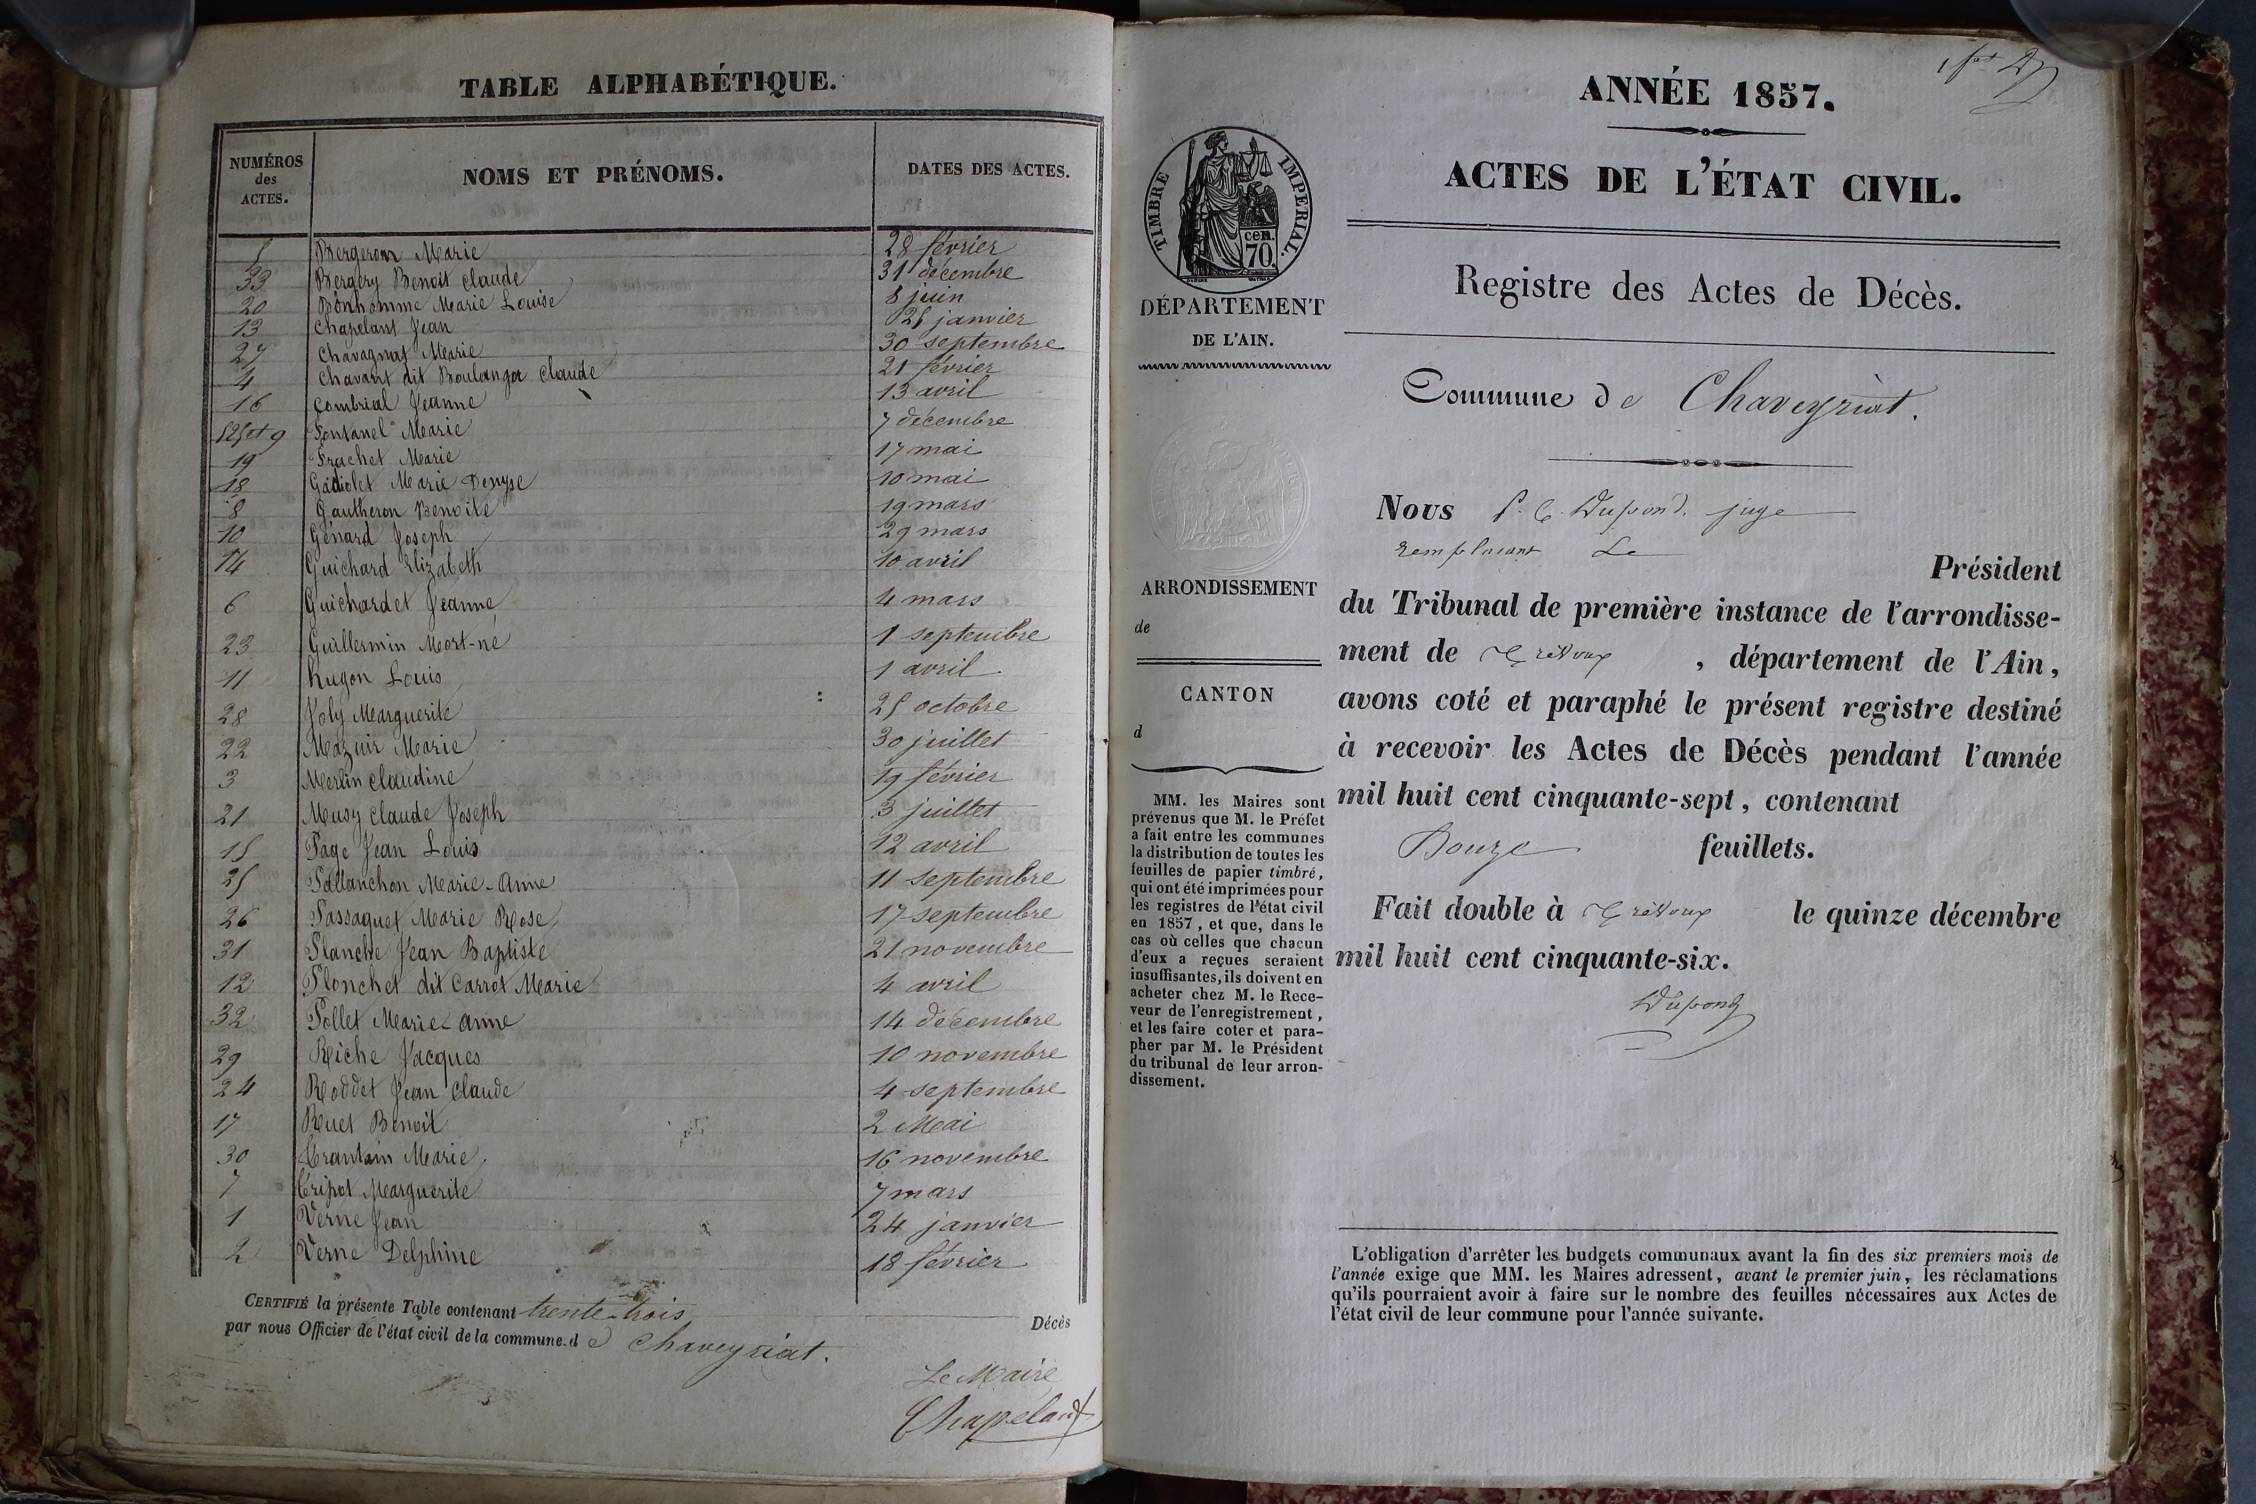 TABLE ALPHABÉTIQUE.
NUMÉROS des ACTES. NOMS ET PRÉNOMS. DATES DES ACTES.
5 Bergeron Marie 28 février
33 Bergery Benoit Claude 31 décembre
20 Bonhomme Marie Louise 8 juin
13 Chapelant Jean 25 janvier
27 Chavagnat Marie 30 septembre
4 Chavant dit Boulanger Claude 21 février
16 Combrial Jeanne 13 avril
et 9 Fontanel Marie 7 décembre
19 Frachet Marie 17 mai
18 Gadiolet Marie Denyse 10 mai
8 Gautheron Benoite 19 mars
10 Génard Joseph 29 mars
14 Guichard Elizabeth 10 avril
6 Guichardet Jeanne 4 mars
23 Guillermin Mort-né 1 septembre
11 hugon Louis 1 avril
28 Joly Marguerite 25 octobre
22 Mazuir Marie 30 juillet
3 Merlin Claudine 19 février
21 Musy Claude Joseph 3 juillet
15 Page Jean Louis 12 avril
25 Pallanchon Marie-Anne 11 septembre
26 Passaquet Marie Rose 17 septembre
31 Planche Jean Baptiste 21 novembre
12 Plonchet dit Carrot Marie 4 avril
32 Pollet Marie-anne 14 décembre
29 Riche Jacques 10 novembre
24 Roddet Jean Claude 4 septembre
17 Ruet Benoit 2 Mai
30 Trantain Marie 16 novembre
7 Tripot Marguerite 7 mars
1 Verne Jean 24 janvier
2 Verne Delphine 18 février
CERTIFIÉ la présente Table contenant trente-trois Décès
par nous Officier de l'état civil de la commune d e Chaveyriat.
Le Maire
Chapelant
ANNÉE 1857.
ACTES DE L'ÉTAT CIVIL.
TIMBRE IMPERIAL.
cen.
70.
DÉPARTEMENT
DE L'AIN.
Registre des Actes de Décès.
Commune de Chaveyriat.
ARRONDISSEMENT
de
CANTON
d
MM. les Maires sont
prévenus que M. le Préfet
a fait entre les communes
la distribution de toutes les
feuilles de papier timbré,
qui ont été imprimées pour
les registres de l'état civil
en 1857, et que, dans le
cas où celles que chacun
d'eux a reçues seraient
insuffisantes, ils doivent en
acheter chez M. le Rece-
veur de l'enregistrement,
et les faire coter et para-
pher par M. le Président
du tribunal de leur arron-
dissement.
Nous P. C. Dupond, juge
remplaçant Le
Président
du Tribunal de première instance de l'arrondisse-
ment de Trévoux, département de l'Ain,
avons coté et paraphé le présent registre destiné
à recevoir les Actes de Décès pendant l'année
mil huit cent cinquante-sept, contenant
Douze feuillets.
Fait double à Trévoux le quinze décembre
mil huit cent cinquante-six.
Dupond
L'obligation d'arrêter les budgets communaux avant la fin des six premiers mois de
l'année exige que MM. les Maires adressent, avant le premier juin, les réclamations
qu'ils pourraient avoir à faire sur le nombre des feuilles nécessaires aux Actes de
l'état civil de leur commune pour l'année suivante.